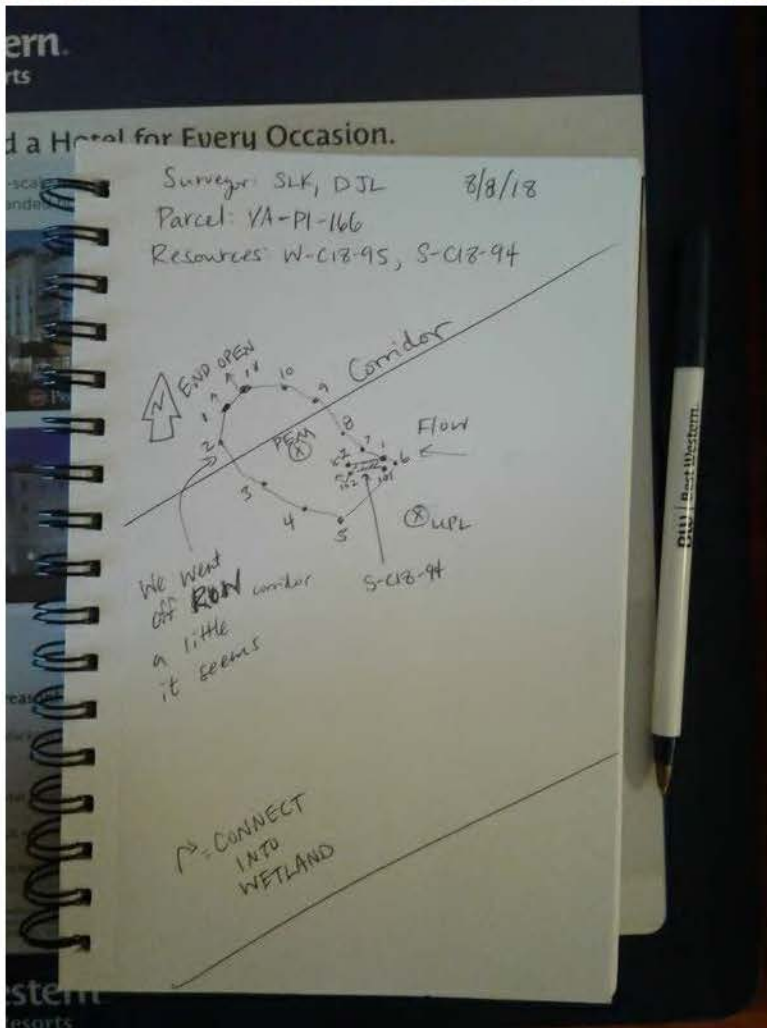 ern.
rts
d a Hotel for Every Occasion.
Surveyor: SLK, DJL 8/8/18
Parcel: VA-PI-166
Resources: W-C18-95, S-C18-94
Corridor
N
END OPEN
1
11
10
9
8
7
1
6
2
PEM
X
Flow
3
4
5
102
101
X UPL
S-C18-94
We went
off ROW corridor
a little
it seems
= CONNECT
INTO
WETLAND
BW | Best Western.
estern
esorts